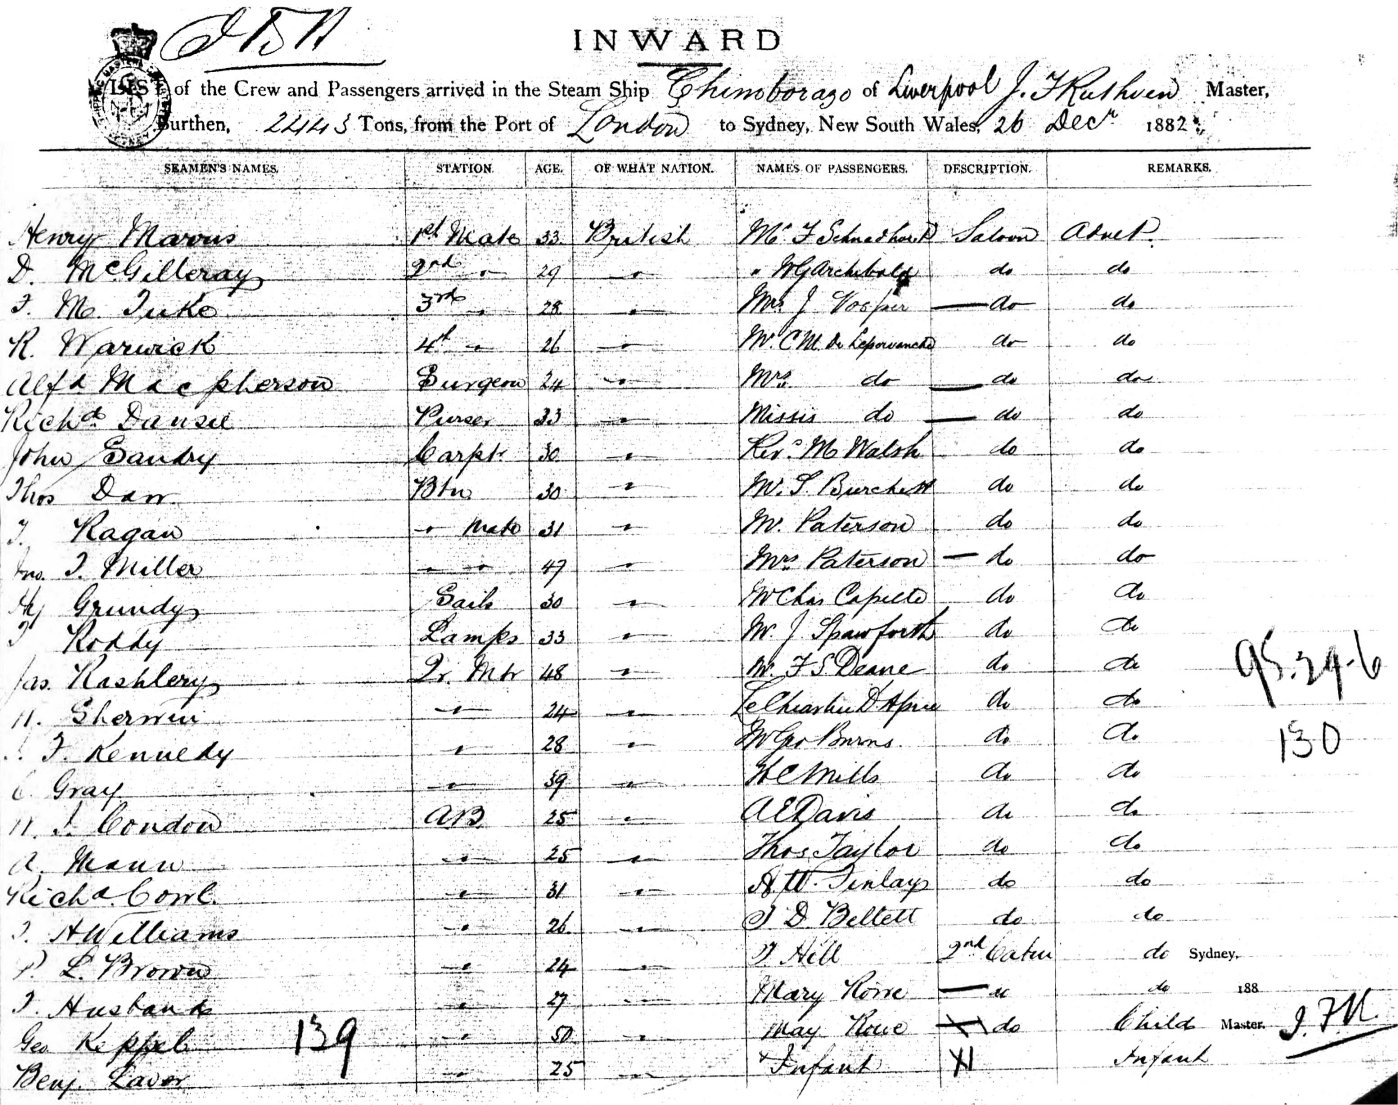 INWARD
LIST of the Crew and Passengers arrived in the Steam Ship Chimborazo of Liverpool J. F Ruthven Master,
Burthen, 2443 Tons, from the Port of London to Sydney, New South Wales, 26 Decr 1882
SEAMEN'S NAMES. STATION. AGE. OF WHAT NATION. NAMES OF PASSENGERS. DESCRIPTION. REMARKS.
Henry Marvus 1st Mate 33 British Mr F Schnadhorst Saloon Adult
D. McGilleray 2nd " 29 " " W G Archibald do do
F. M. Tuke 3rd " 28 " Mrs J Vosper do do
R. Warwick 4th " 26 " Mr. C M De do do
Alfd Macpherson Surgeon 24 " Mrs do do do
Richd Dansie Purser 33 " Missis do do do
John Gandry Carptr 30 " Revd M Walsh do do
Thos Daw Btn 30 " Mr. S. Burchett do do
T. Ragan " Mate 31 " Mr. Paterson do do
Jno. T. Miller " " 47 " Mrs Paterson do do
Hy Grundy Sails 30 " Mr Chas do do
T Roddy Lamps 33 " Mr. J Spawforth do do
Jas. Rashlery Qr. Mtr 48 " Mr. F S Deane do do
95.29.6
H. Sherwin " 24 " Le do do
F. Kennedy " 28 " Mr Geo Burns do do
130
C Gray " 39 " H C Mills do do
H. J. Condon AB 25 " A E Davis do do
A. Mann " 25 " Thos Taylor do do
Richd. Cowl " 31 " A W. Finlay do do
T. H Williams " 26 " J D Bellett do do
P. L. Brown " 24 " T Hill 2nd Cabin do Sydney,
T. Husbands " 27 " Mary Rowe " do 188
Geo Keppel 139 " 50 " May Rowe do Child Master. J. F. R.
Benj Laver " 25 " Infant Infant